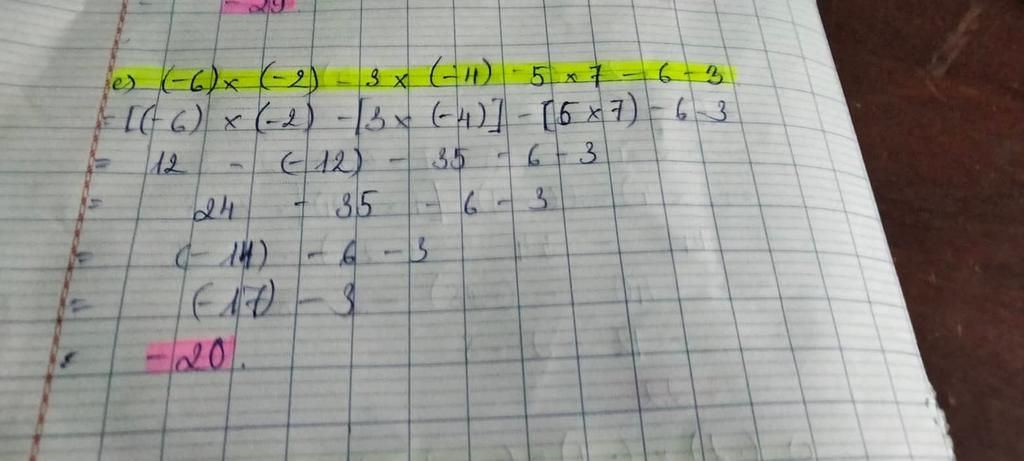 -29.
e) (-6) x (-2) - 3 x (-4) - 5 x 7 - 6 - 3
= [(-6) x (-2) - [3 x (-4)] - [5 x 7) - 6 - 3
= 12 - (-12) - 35 - 6 - 3
= 24 - 35 - 6 - 3
= (-14) - 6 - 3
= (-17) - 3
= -20.